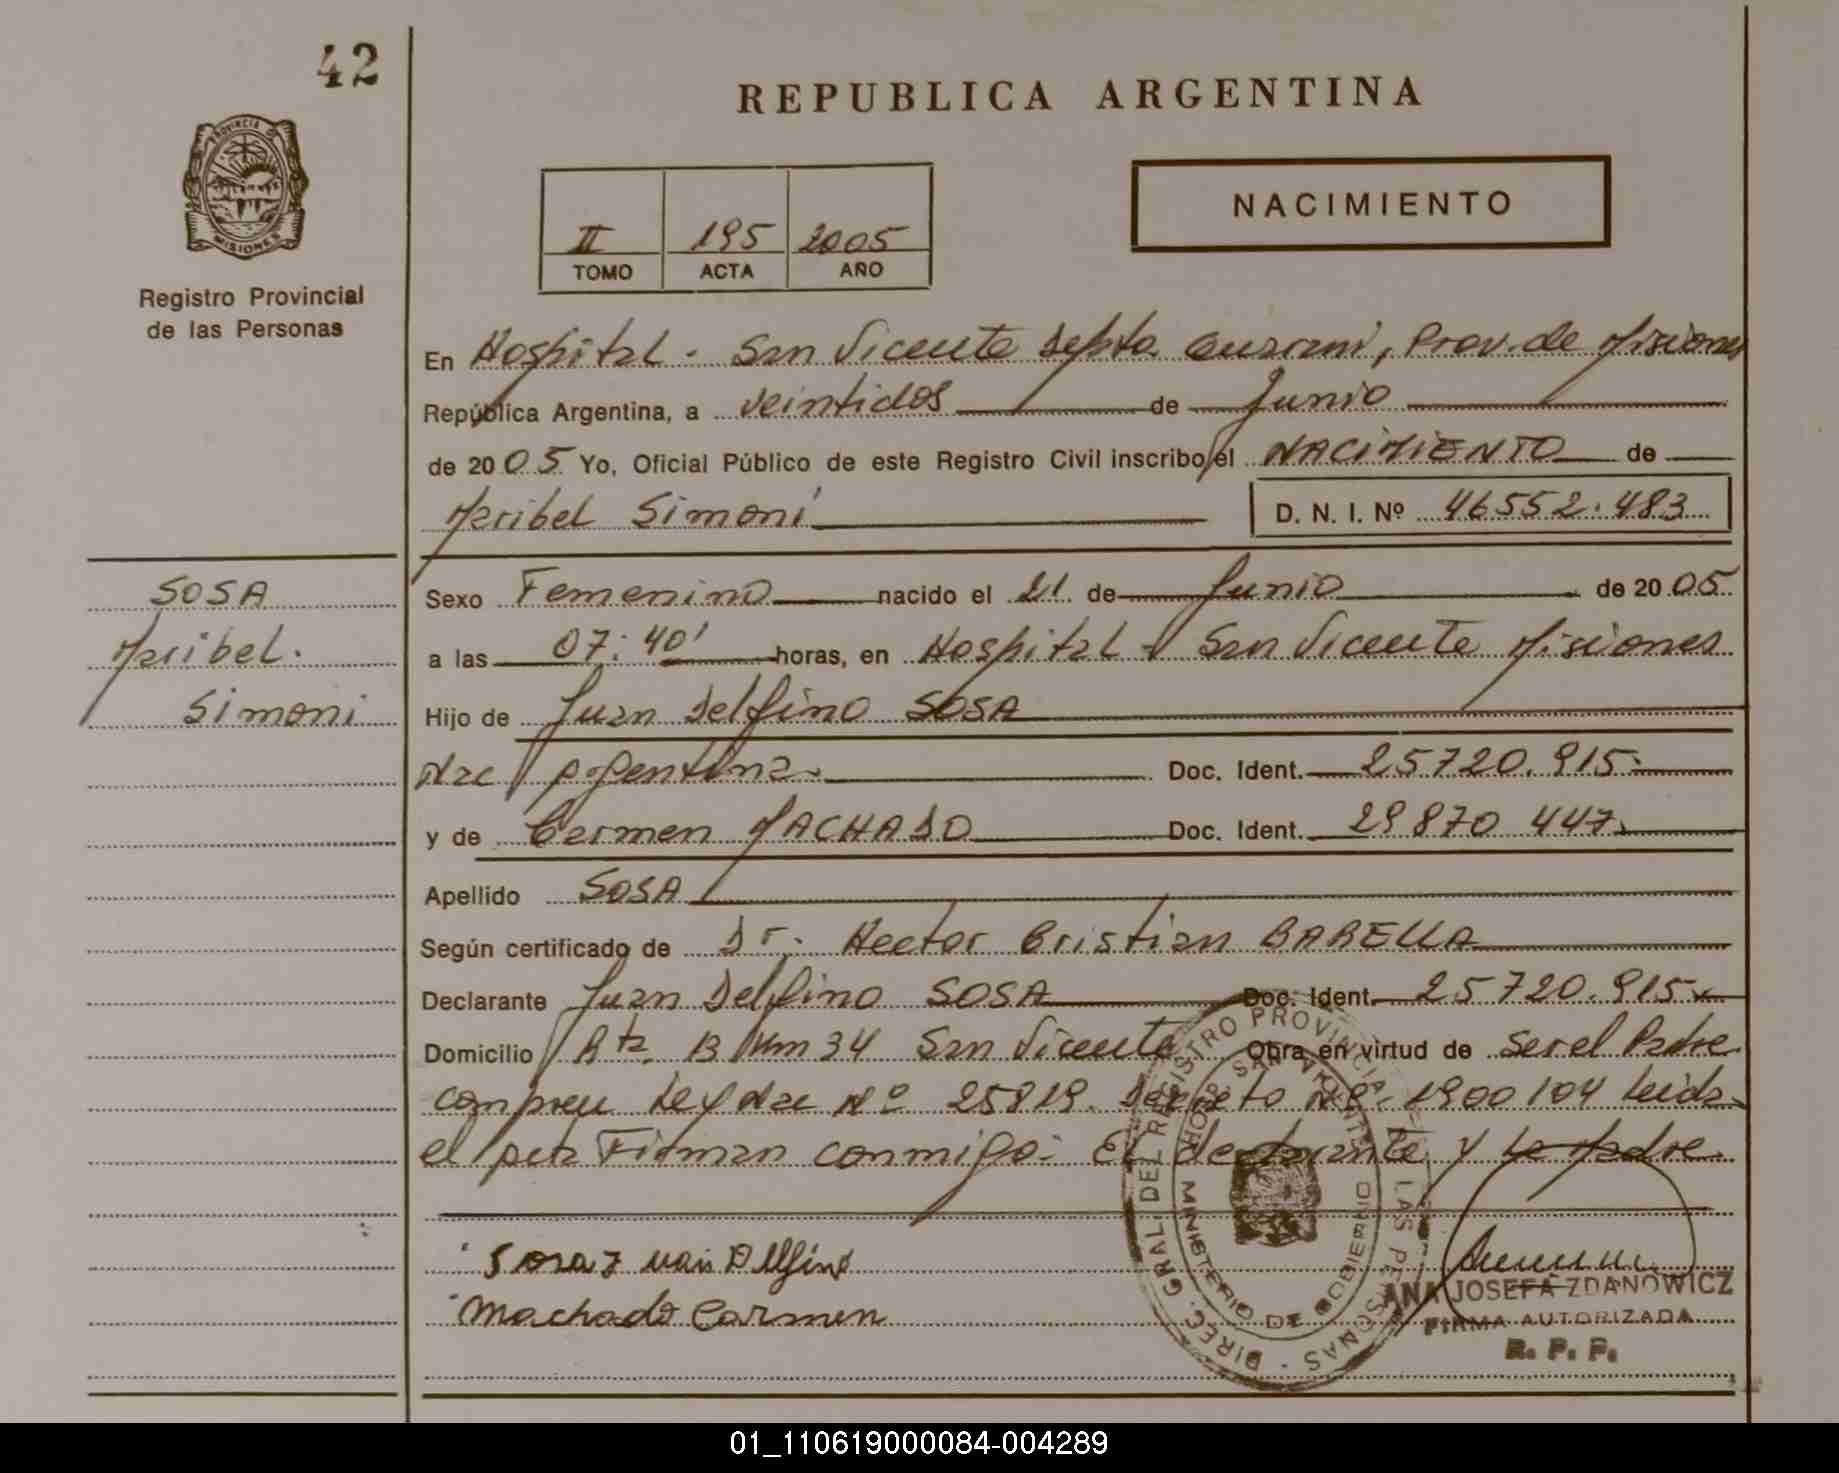 42
REPUBLICA ARGENTINA
PROVINCIA DE
MISIONES
Registro Provincial
de las Personas
II 195 2005
TOMO ACTA AÑO
NACIMIENTO
En Hospital - San Vicente Depto Guarani, Prov. de Misiones
República Argentina, a veintidos de Junio
de 2005 Yo, Oficial Público de este Registro Civil inscribo el NACIMIENTO de
Maribel Simoni
D. N. I. Nº 46552.483
SOSA
Maribel.
Simoni
Sexo Femenino nacido el 21 de Junio de 2005
a las 07:40' horas, en Hospital - San Vicente Misiones
Hijo de Juan Delfino SOSA
Nac Argentina. Doc. Ident. 25720.915.
y de Carmen MACHADO Doc. Ident. 29870 447.
Apellido SOSA
Según certificado de Dr. Hector Cristian BARELLA
Declarante Juan Delfino SOSA Doc. Ident. 25720.915
Domicilio Rta. 13 Km 34 San Vicente Obra en virtud de ser el Padre
Ley Nac Nº 25819. Decreto Nº 1900/04 Leida
el acta Firman conmigo: El declarante y La Madre.
Sosa Juan Delfino
Machado Carmen
DIREC. GRAL. DEL REGISTRO PROVINCIAL DE LAS PERSONAS
HOSP. SAN VICENTE
MINISTERIO DE GOBIERNO
ANA JOSEFA ZDANOWICZ
FIRMA AUTORIZADA
R. P. P.
01_110619000084-004289